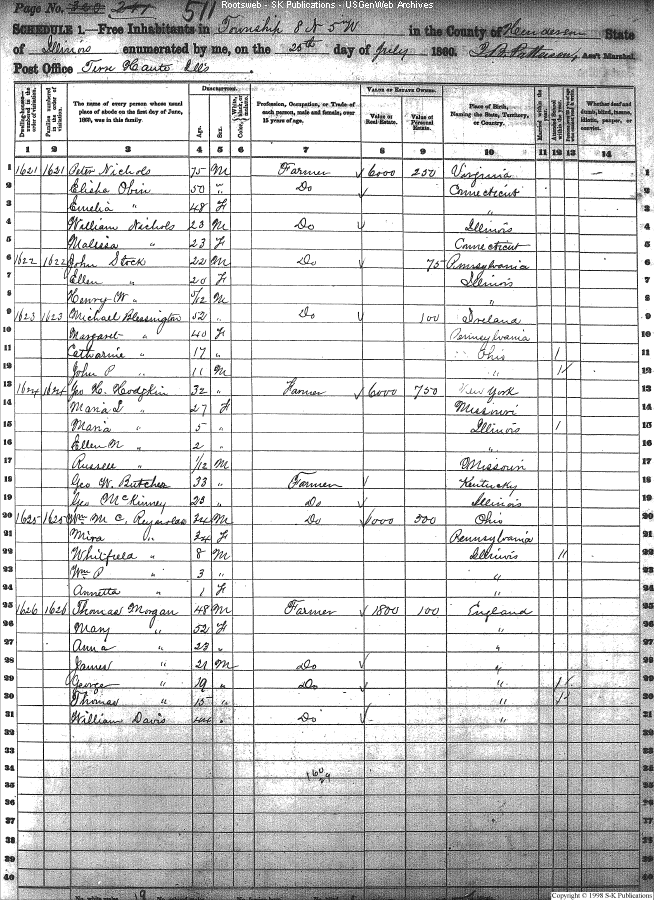 Rootsweb - SK Publications - USGenWeb Archives
Page No. 511
SCHEDULE 1.—Free Inhabitants in Township 8 N 5 W in the County of Henderson State
of Illinois enumerated by me, on the 25th day of July 1860. Ass't Marshal
Post Office Terre Haute Ills.
Dwelling-houses numbered in the order of visitation.
Families numbered in the order of visitation.
The name of every person whose usual place of abode on the first day of June, 1860, was in this family.
DESCRIPTION.
Age.
Sex.
Color, White, black, or mulatto.
Profession, Occupation, or Trade of each person, male and female, over 15 years of age.
VALUE OF ESTATE OWNED.
Value of Real Estate.
Value of Personal Estate.
Place of Birth, Naming the State, Territory, or Country.
Married within the year.
Attended School within the year.
Whether deaf and dumb, blind, insane, idiotic, pauper, or convict.
1 2 3 4 5 6 7 8 9 10 11 12 13 14
1 1621 1621 Peter Nichols 75 M Farmer 6000 250 Virginia 1
2 Elisha Obin 50 " Do Connecticut 2
3 Emelia " 48 F " 3
4 William Nichols 23 M Do Illinois 4
5 Malissa " 23 F Connecticut 5
6 1622 1622 John Stock 22 M Do 75 Pennsylvania 6
7 Ellen " 20 F Illinois 7
8 Henry W " /12 M " 8
9 1623 1623 Michael Blessington 52 " Do 100 Ireland 9
10 Margaret " 40 F Pennsylvania 10
11 Catharine " 17 " Ohio 1 11
12 John P " 11 M " 1/ 12
13 1624 1624 Geo H. Hodgkin 32 " Farmer 6000 750 New York 13
14 Maria L " 27 F Missouri 14
15 Maria " 5 " Illinois 1 15
16 Ellen M " 2 " " 16
17 Russell " 1/12 M Missouri 17
18 Geo W. Butcher 33 " Farmer Kentucky 18
19 Geo McKinney 23 " Do Illinois 19
20 1625 1625 Wm M C. Reynolds 34 M Do 500 Ohio 20
21 Mira " 34 F Pennsylvania 21
22 Whitfield " 8 M Illinois 11 22
23 Wm P " 3 " " 23
24 Annetta " 1 F " 24
25 1626 1626 Thomas Morgan 48 M Farmer 1800 100 England 25
26 Mary " 52 F " 26
27 Anna " 23 " " 27
28 James " 21 M Do " 28
29 George " 19 " Do " 1/ 29
30 Thomas " 15 " " 1/ 30
31 William Davis 44 " Do " 31
32 32
33 33
34 34
35 35
36 36
37 37
38 38
39 39
40 40
Copyright © 1998 S-K Publications